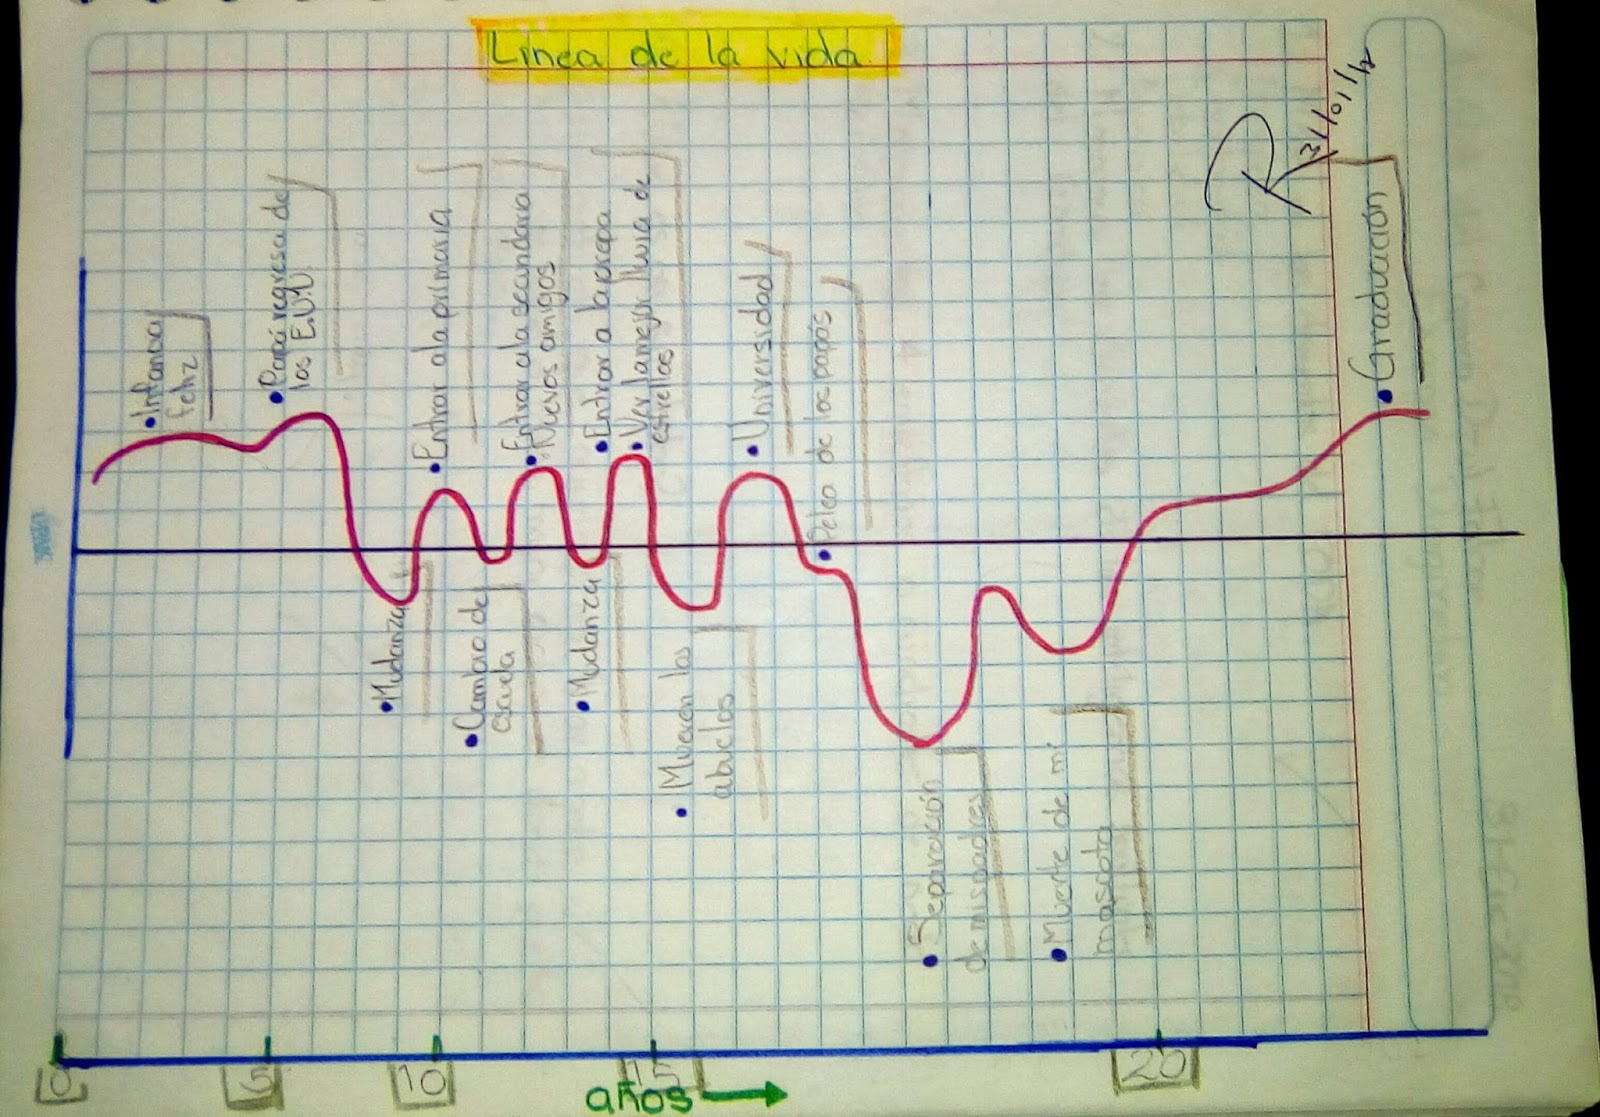 Linea de la vida
31/01/12
Infancia
feliz
Papá regresa de
los E.U.U
Entrar a la primaria
Entrar a la secundaria
Nuevos amigos
Entrar a la prepa
Ver la mejor lluvia de
estrellas
Universidad
Pelea de los papás
Graduación
Mudanza
Cambio de
escuela
Mudanza
Mueren los
abuelos
Separación
de mis padres
Muerte de mi
mascota
0
5
10
15
20
años